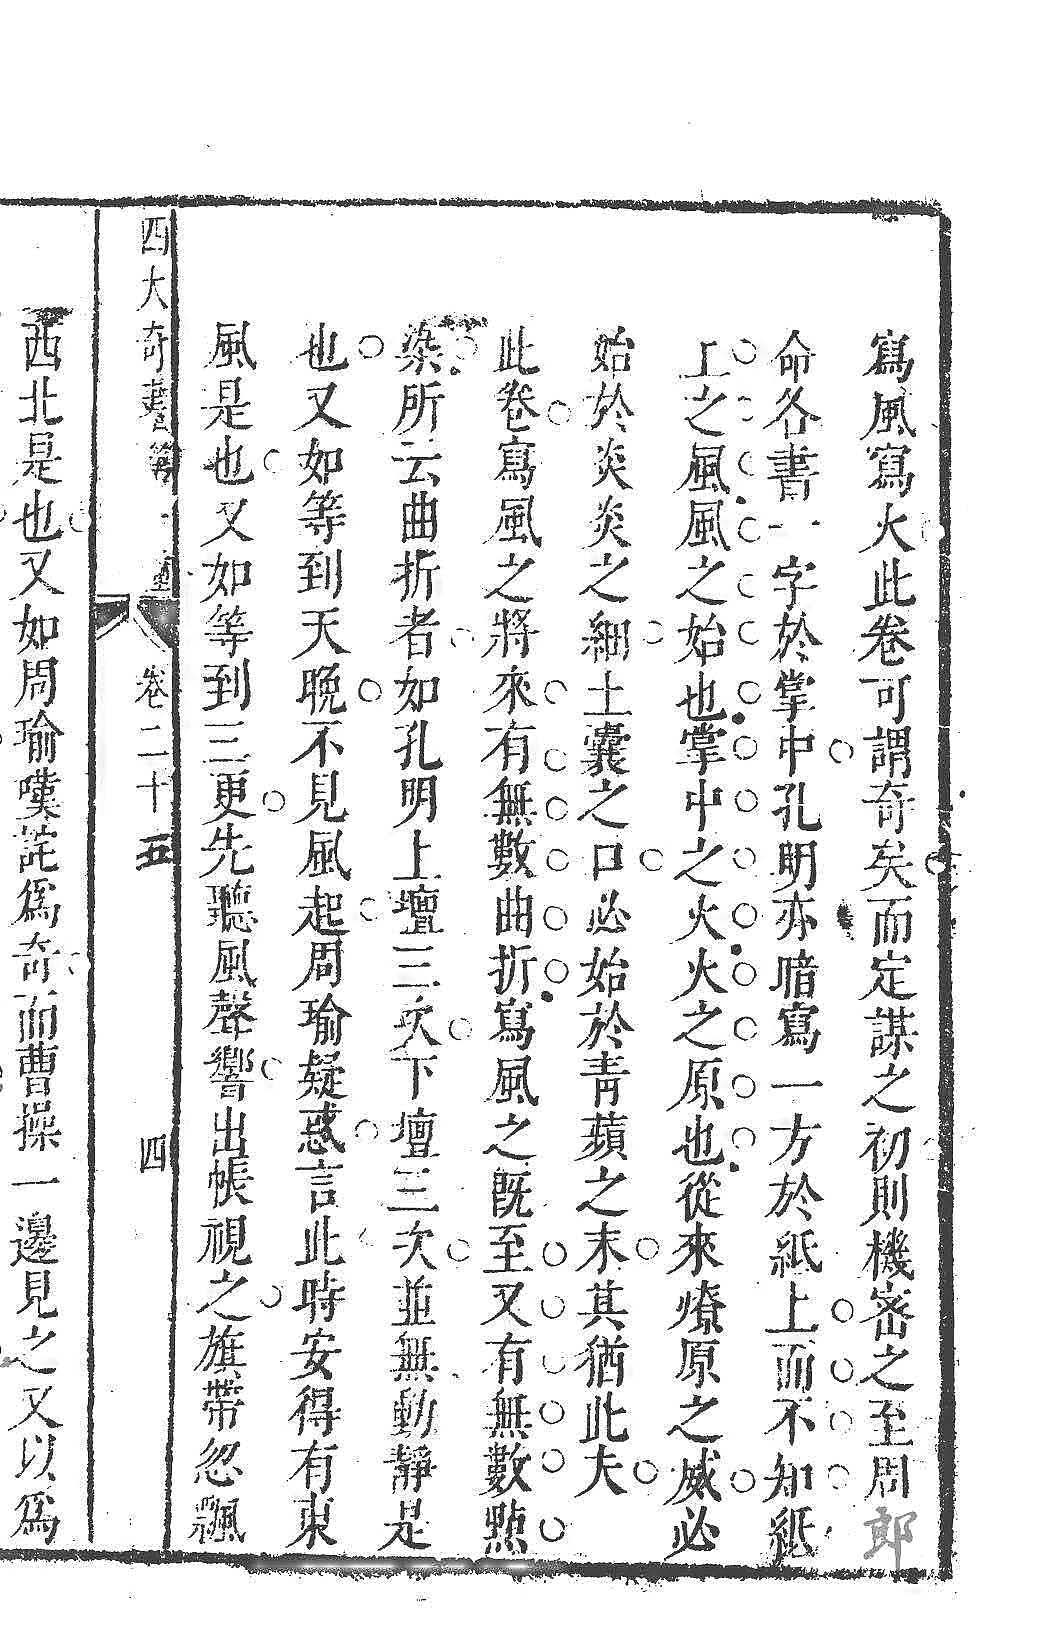 寫風寫火此卷可謂奇矣而定謀之初則機密之至周郎
命各書一字於掌中孔明亦暗寫一方於紙上而不知紙
上之風風之始也掌中之火火之原也從來燎原之威必
始於炎炎之細土囊之口必始於青蘋之末其猶此夫
此卷寫風之將來有無數曲折寫風之既至又有無數點
染所云曲折者如孔明上壇三次下壇三次並無動靜是
也又如等到天晚不見風起周瑜疑惑言此時安得有東
風是也又如等到三更先聽風聲響出帳視之旗帶忽飄
四大奇書第一種
卷二十五
四
西北是也又如周瑜嘆詫爲奇而曹操一邊見之又以爲